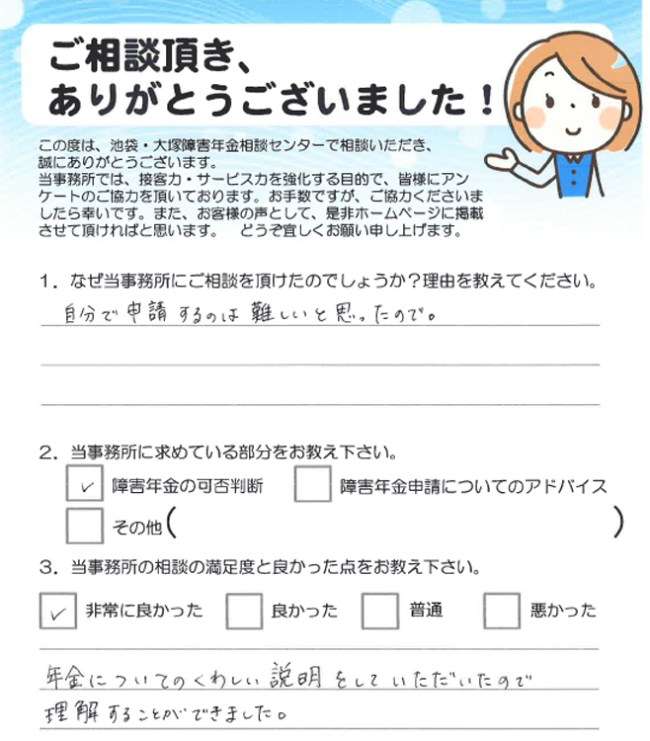 ご相談頂き、
ありがとうございました!
この度は、池袋・大塚障害年金相談センターで相談いただき、
誠にありがとうございます。
当事務所では、接客力・サービス力を強化する目的で、皆様にアン
ケートのご協力を頂いております。お手数ですが、ご協力くださいま
したら幸いです。また、お客様の声として、是非ホームページに掲載
させて頂ければと思います。 どうぞ宜しくお願い申し上げます。
1.なぜ当事務所にご相談を頂けたのでしょうか?理由を教えてください。
自分で申請するのは難しいと思ったので。
2.当事務所に求めている部分をお教え下さい。
✓ 障害年金の可否判断 障害年金申請についてのアドバイス
その他( )
3.当事務所の相談の満足度と良かった点をお教え下さい。
✓ 非常に良かった 良かった 普通 悪かった
年金についてのくわしい説明をしていただいたので
理解することができました。